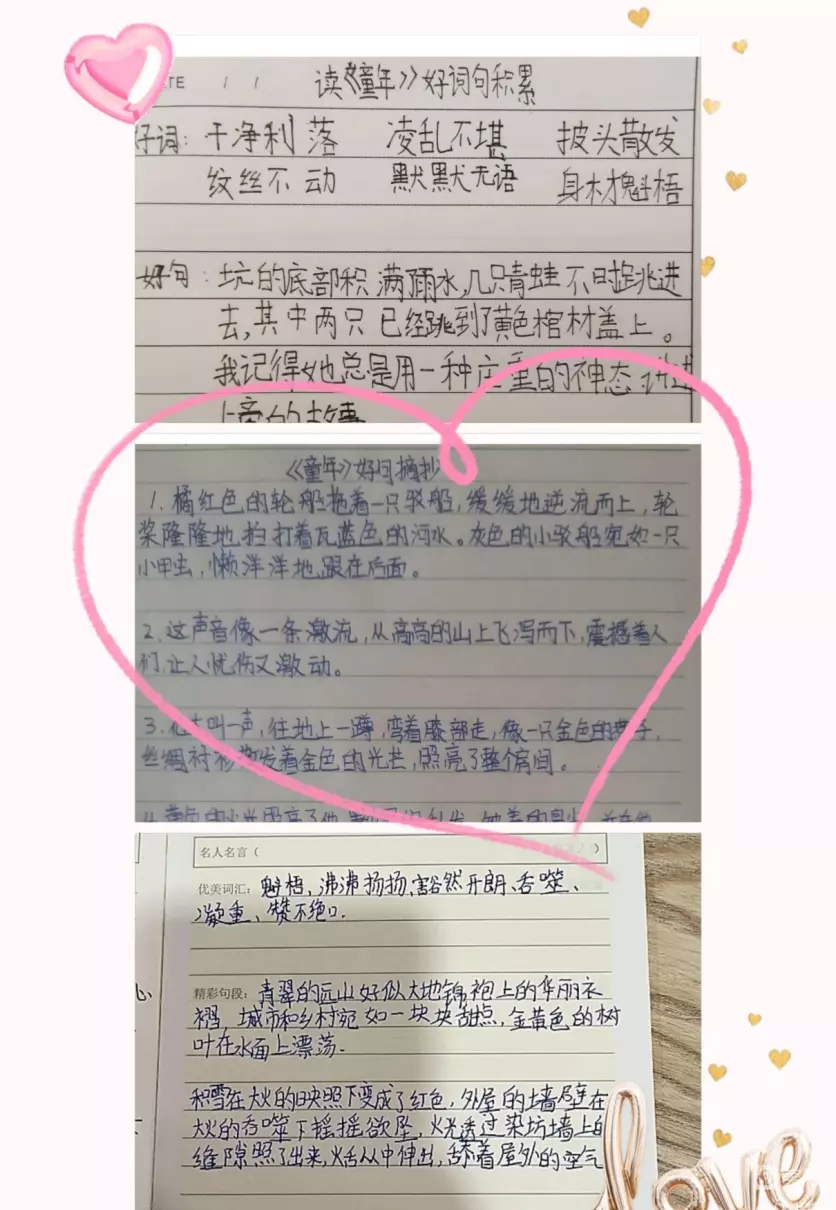 DATE / /
读《童年》好词句积累
好词: 干净利落 凌乱不堪 披头散发
纹丝不动 默默无语 身材魁梧
好句: 坑的底部积满雨水,几只青蛙不时跳进
去,其中两只已经跳到了黄色棺材盖上。
我记得她总是用一种庄重的神态讲述
上帝的故事
《童年》好句摘抄
1. 橘红色的轮船拖着一只驳船,缓缓地逆流而上,轮
桨隆隆地拍打着瓦蓝色的河水。灰色的小驳船宛如一只
小甲虫,懒洋洋地跟在后面。
2. 这声音像一条激流,从高高的山上飞泻而下,震撼着人
们,让人忧伤又激动。
3. 他大叫一声,往地上一蹲,弯着膝部走,像一只金色的燕子,
丝绸衬衫散发着金色的光芒,照亮了整个房间。
名人名言( )
优美词汇: 魁梧、沸沸扬扬、豁然开朗、吞噬、
凝重、赞不绝口.
精彩句段: 青翠的远山好似大地锦袍上的华丽衣
褶,城市和乡村宛如一块块甜点,金黄色的树
叶在水面上漂荡.
积雪在大火的映照下变成了红色,外屋的墙壁在
大火的吞噬下摇摇欲坠,火光透过染坊墙上的
缝隙照了出来,火舌从中伸出,舔着屋外的空气
love